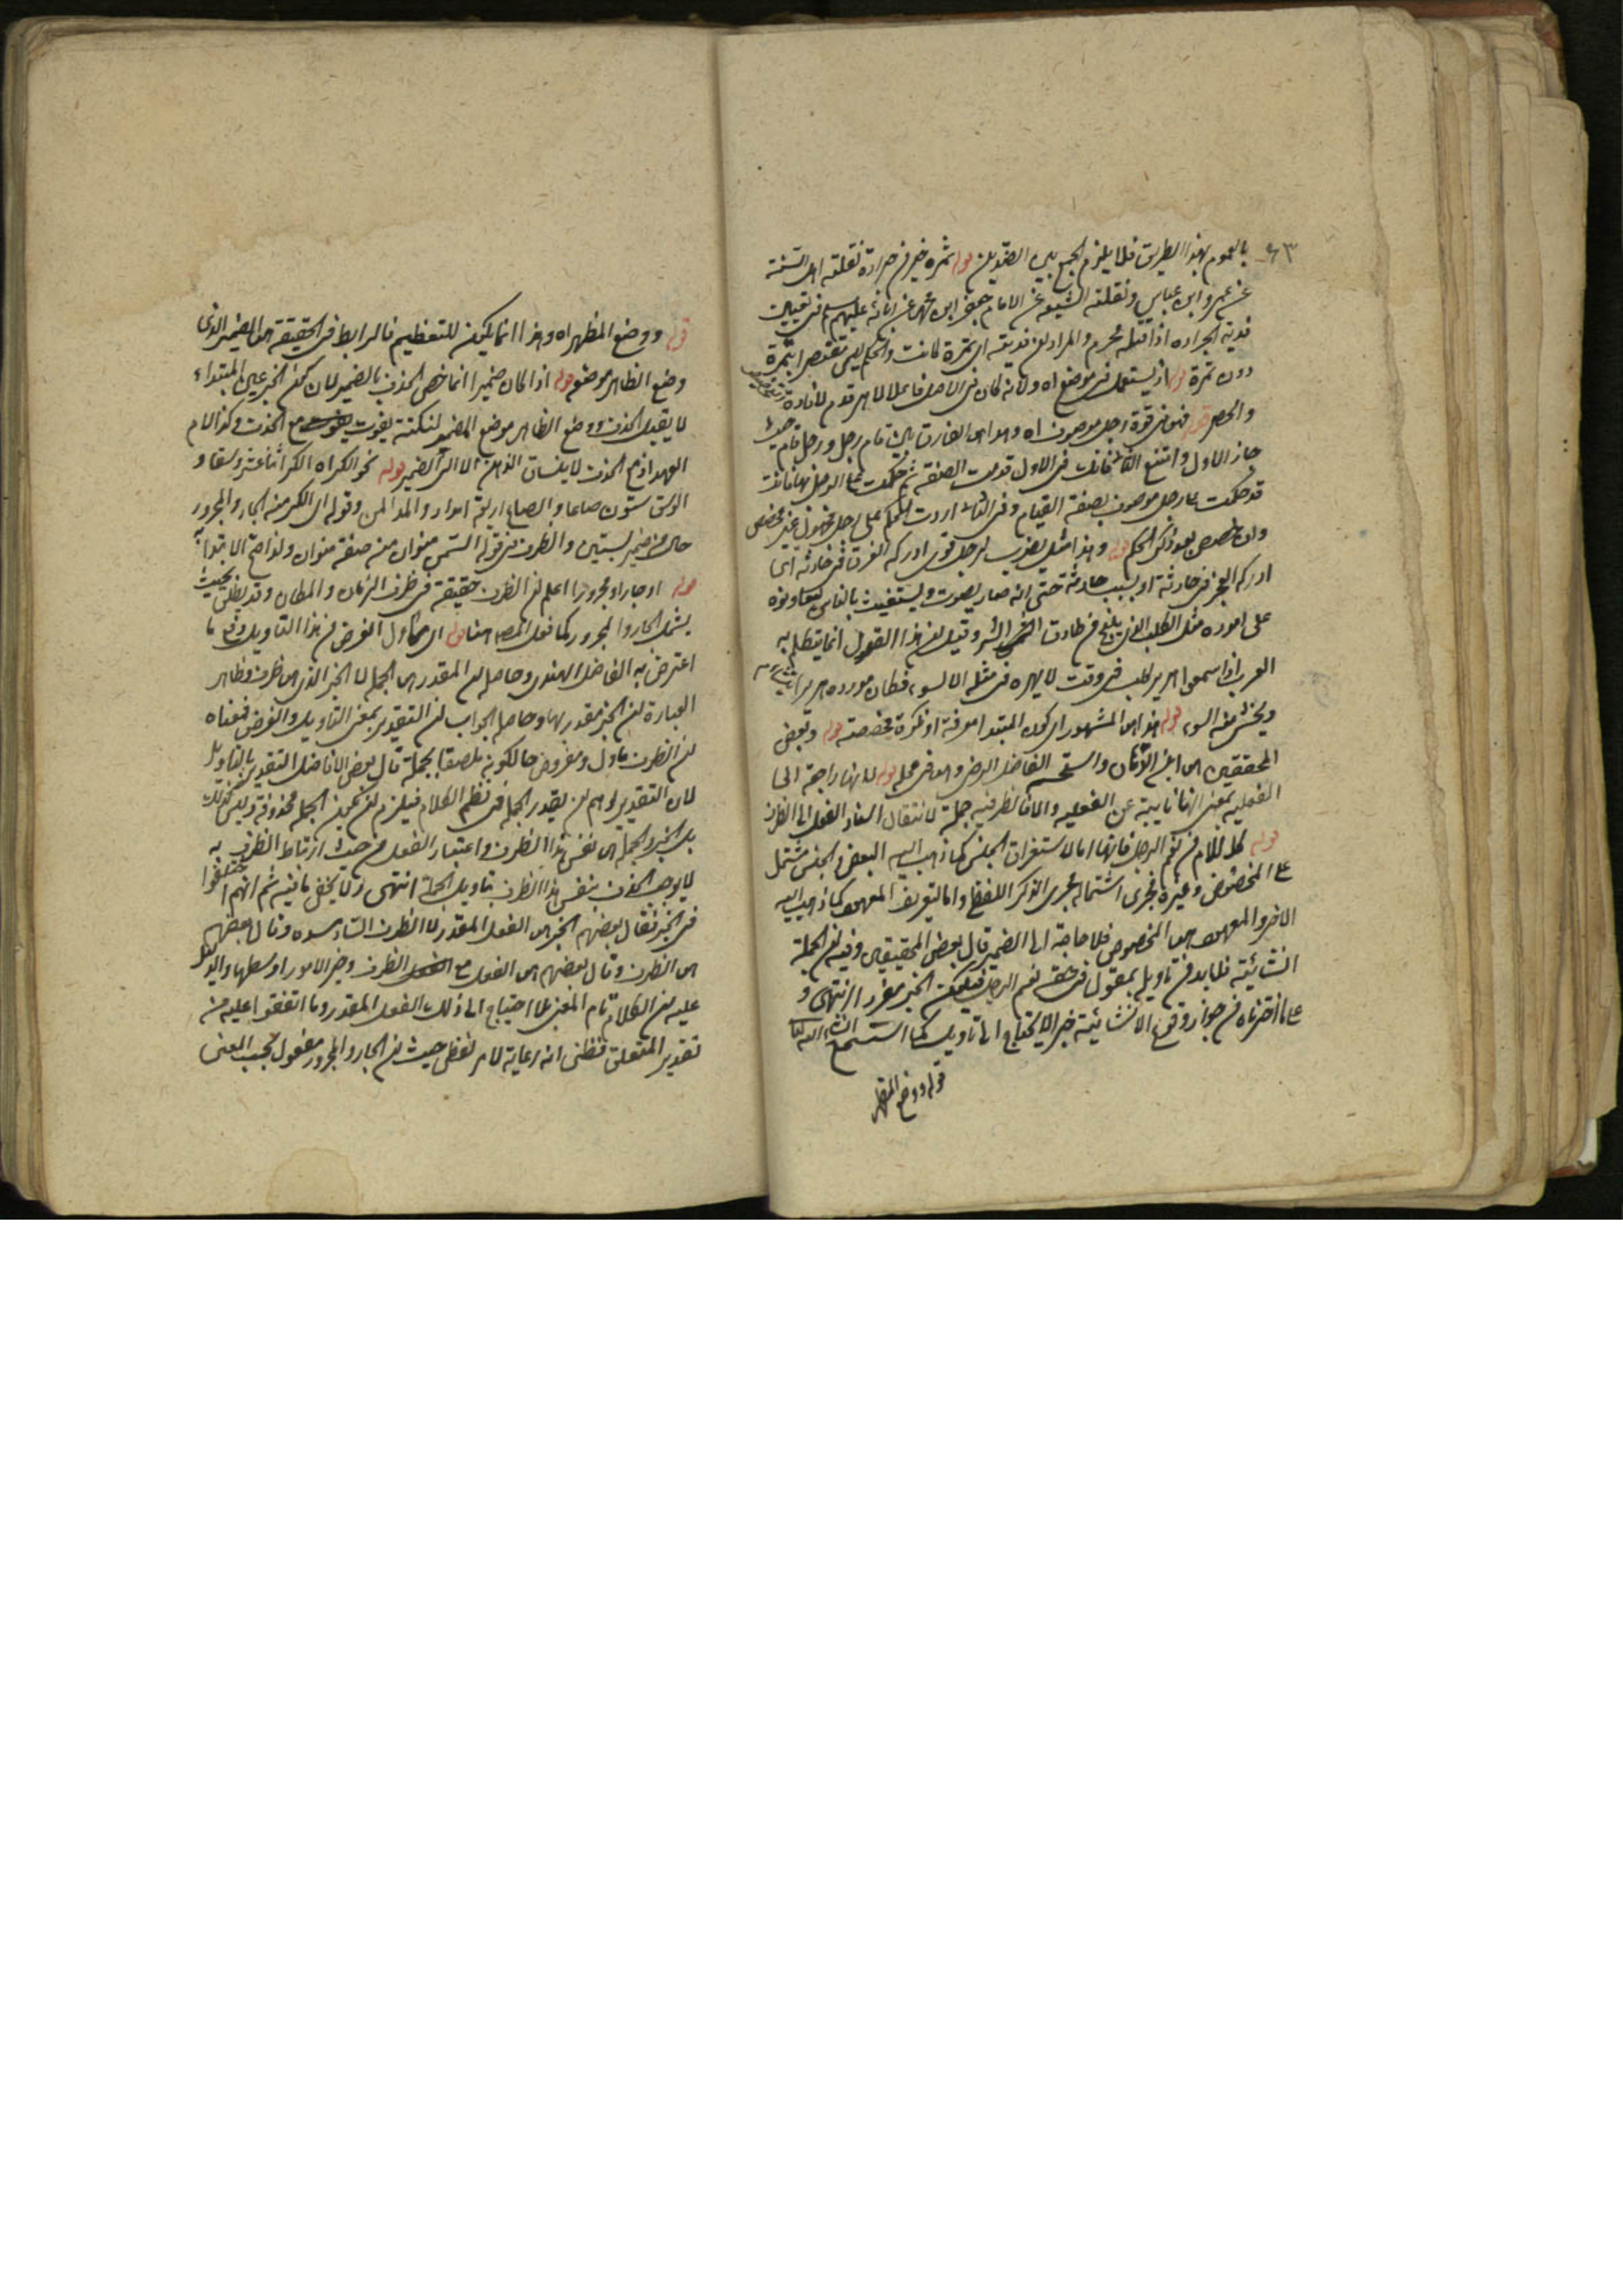 ٦٣
بالعموم بهذا الطريق فلا يلزم الجمع بين الضدين قوله تمرة خير من جرادة نقلته اهل السنة
عن عمر وابن عباس ونقلته الشيعة عن الامام جعفر ابن محمد عن آبائه عليهم السلم في تعيين
فدية الجراده اذا قتله محرم والمراد ان فديته اى تمرة كانت والحكم ليس مقتصرا بتمرة
دون تمرة قوله اذ يستعمل في موضع اه ولانه كان في الاصل فاعلا لاهر قدم لافادة
والحصر قوله فهو في قوة رجل موصوف اه وهذا هو الفارق بين قام رجل ورجل قام حيث
جاز الاول وامتنع الثانى فانك في الاول قدمت الصفة ثم حكمت على الرجل بها فانت
قد حكمت على رجل موصوف بصفة القيام وفي الثانى اردت الحكم على رجل مجهول غير مخصص
وان خصص بعد ذكر الحكم قوله وهذا مثل يضرب لرجل قوى ادركه الغرق في حادثه اى
ادركه العجز في حادثة او بسبب حادثة حتى انه صار يصوت ويستغيث بالناس ليعاونوه
على اموره مثل الكلب الذى يلنج من طارق الشر وقيل ان هذا القول انما يتكلم به
العرب اذا سمعوا هرير كلب في وقت لا يهره في مثله الا لسوء فكان مورده هريرا
ويخش منه السوء قوله هذا هو المشهور اى كون المبتدا معرفة او نكرة مخصصة قوله وبعض
المحققين هو ابن الدهان واستحسنه الفاضل الرضى وهو في محله قوله لانها راجعة الى
الفعلية بمعنى انها نايبة عن الفعليه والا فالظرفية جملة لانتقال اسناد الفعل الى الظرف
قوله كاللام في نعم الرجل فانها اما لاستغراق الجنس كما ذهب اليه البعض والجنس مشتمل
على المخصوص وغيره فجرى اشتماله مجرى الذكر اللفظى واما لتعريف المعهود كما ذهب اليه
الاخر والمعهود هو المخصوص فلا حاجة الى الضمير قال بعض المحققين وفيه ان الجملة
انشائية فلا بد من تأويله بمقول في حقه نعم الرجل فيكون الخبر مفردا انتهى و
على ما اخترناه من جواز وقوع الانشائية خبرا لا يحتاج الى تاويل كما استسمع ان شاء الله تعالى
قوله ووضع المظهر
قوله ووضع المظهر اه وهذا انما يكون للتعظيم فالرابط في الحقيقة هو الضمير الذى
وضع الظاهر موضعه قوله اذا كان ضميرا انما خص الحذف بالضمير لان كون الخبر عين المبتداء
لا يقبل الحذف ووضع الظاهر موضع المضمر لنكتة يفوت مع الحذف وكذا لام
العهد اذ مع الحذف لا ينساق الذهن الا الى الضمير قوله نحو الكر اه الكر اثنا عشر وسقا و
الوسق ستون صاعا والصاع اربعة امداد والمد المن وقوله اى الكر منه الجار والمجرور
حال من ضمير بستين والظرف في قوله السمن منوان منه صفة منوان ولذا صح الابتداء به
قوله او جارا ومجرورا اعلم ان الظرف حقيقة في ظرف الزمان والمكان وقد يطلق بحيث
يشمل الجار والمجرور كما فعل المصنف هنا قوله اى ماول الغرض من هذا التاويل دفع ما
اعترض به الفاضل الهندى وحاصله ان المقدر هو الجملة لا الخبر الذى هو ظرف وظاهر
العبارة ان الخبر مقدر بها وحاصل الجواب ان التقدير بمعنى التاويل والفرض فمعناه
ان الظرف ماول ومفروض حالكونه ملصقا بجملة قال بعض الافاضل التقدير بالتاويل
لان التقدير يوهم ان يقدر الجملة في نظم الكلام فيلزم ان يكون الجملة محذوفة وليس كذلك
بل الخبر والجملة هو نفس هذا الظرف واعتبار الفعل من حيث ارتباط الظرف به
لا يوجب الحذف بنفس هذا الظرف بتاويل الجملة انتهى ولا يخفى ما فيه ثم انهم اختلفوا
في الخبر فقال بعضهم الخبر هو الفعل المقدر لا الظرف الساد مسده وقال بعضهم
هو الظرف وقال بعضهم هو الفعل مع الظرف وخير الامور اوسطها والدليل
عليه ان الكلام تام المعنى بلا احتياج الى ذلك الفعل المقدر وما اتفقوا عليه من
تقدير المتعلق فظنى انه رعاية لامر لفظى حيث ان الجار والمجرور مفعول بحسب المعنى